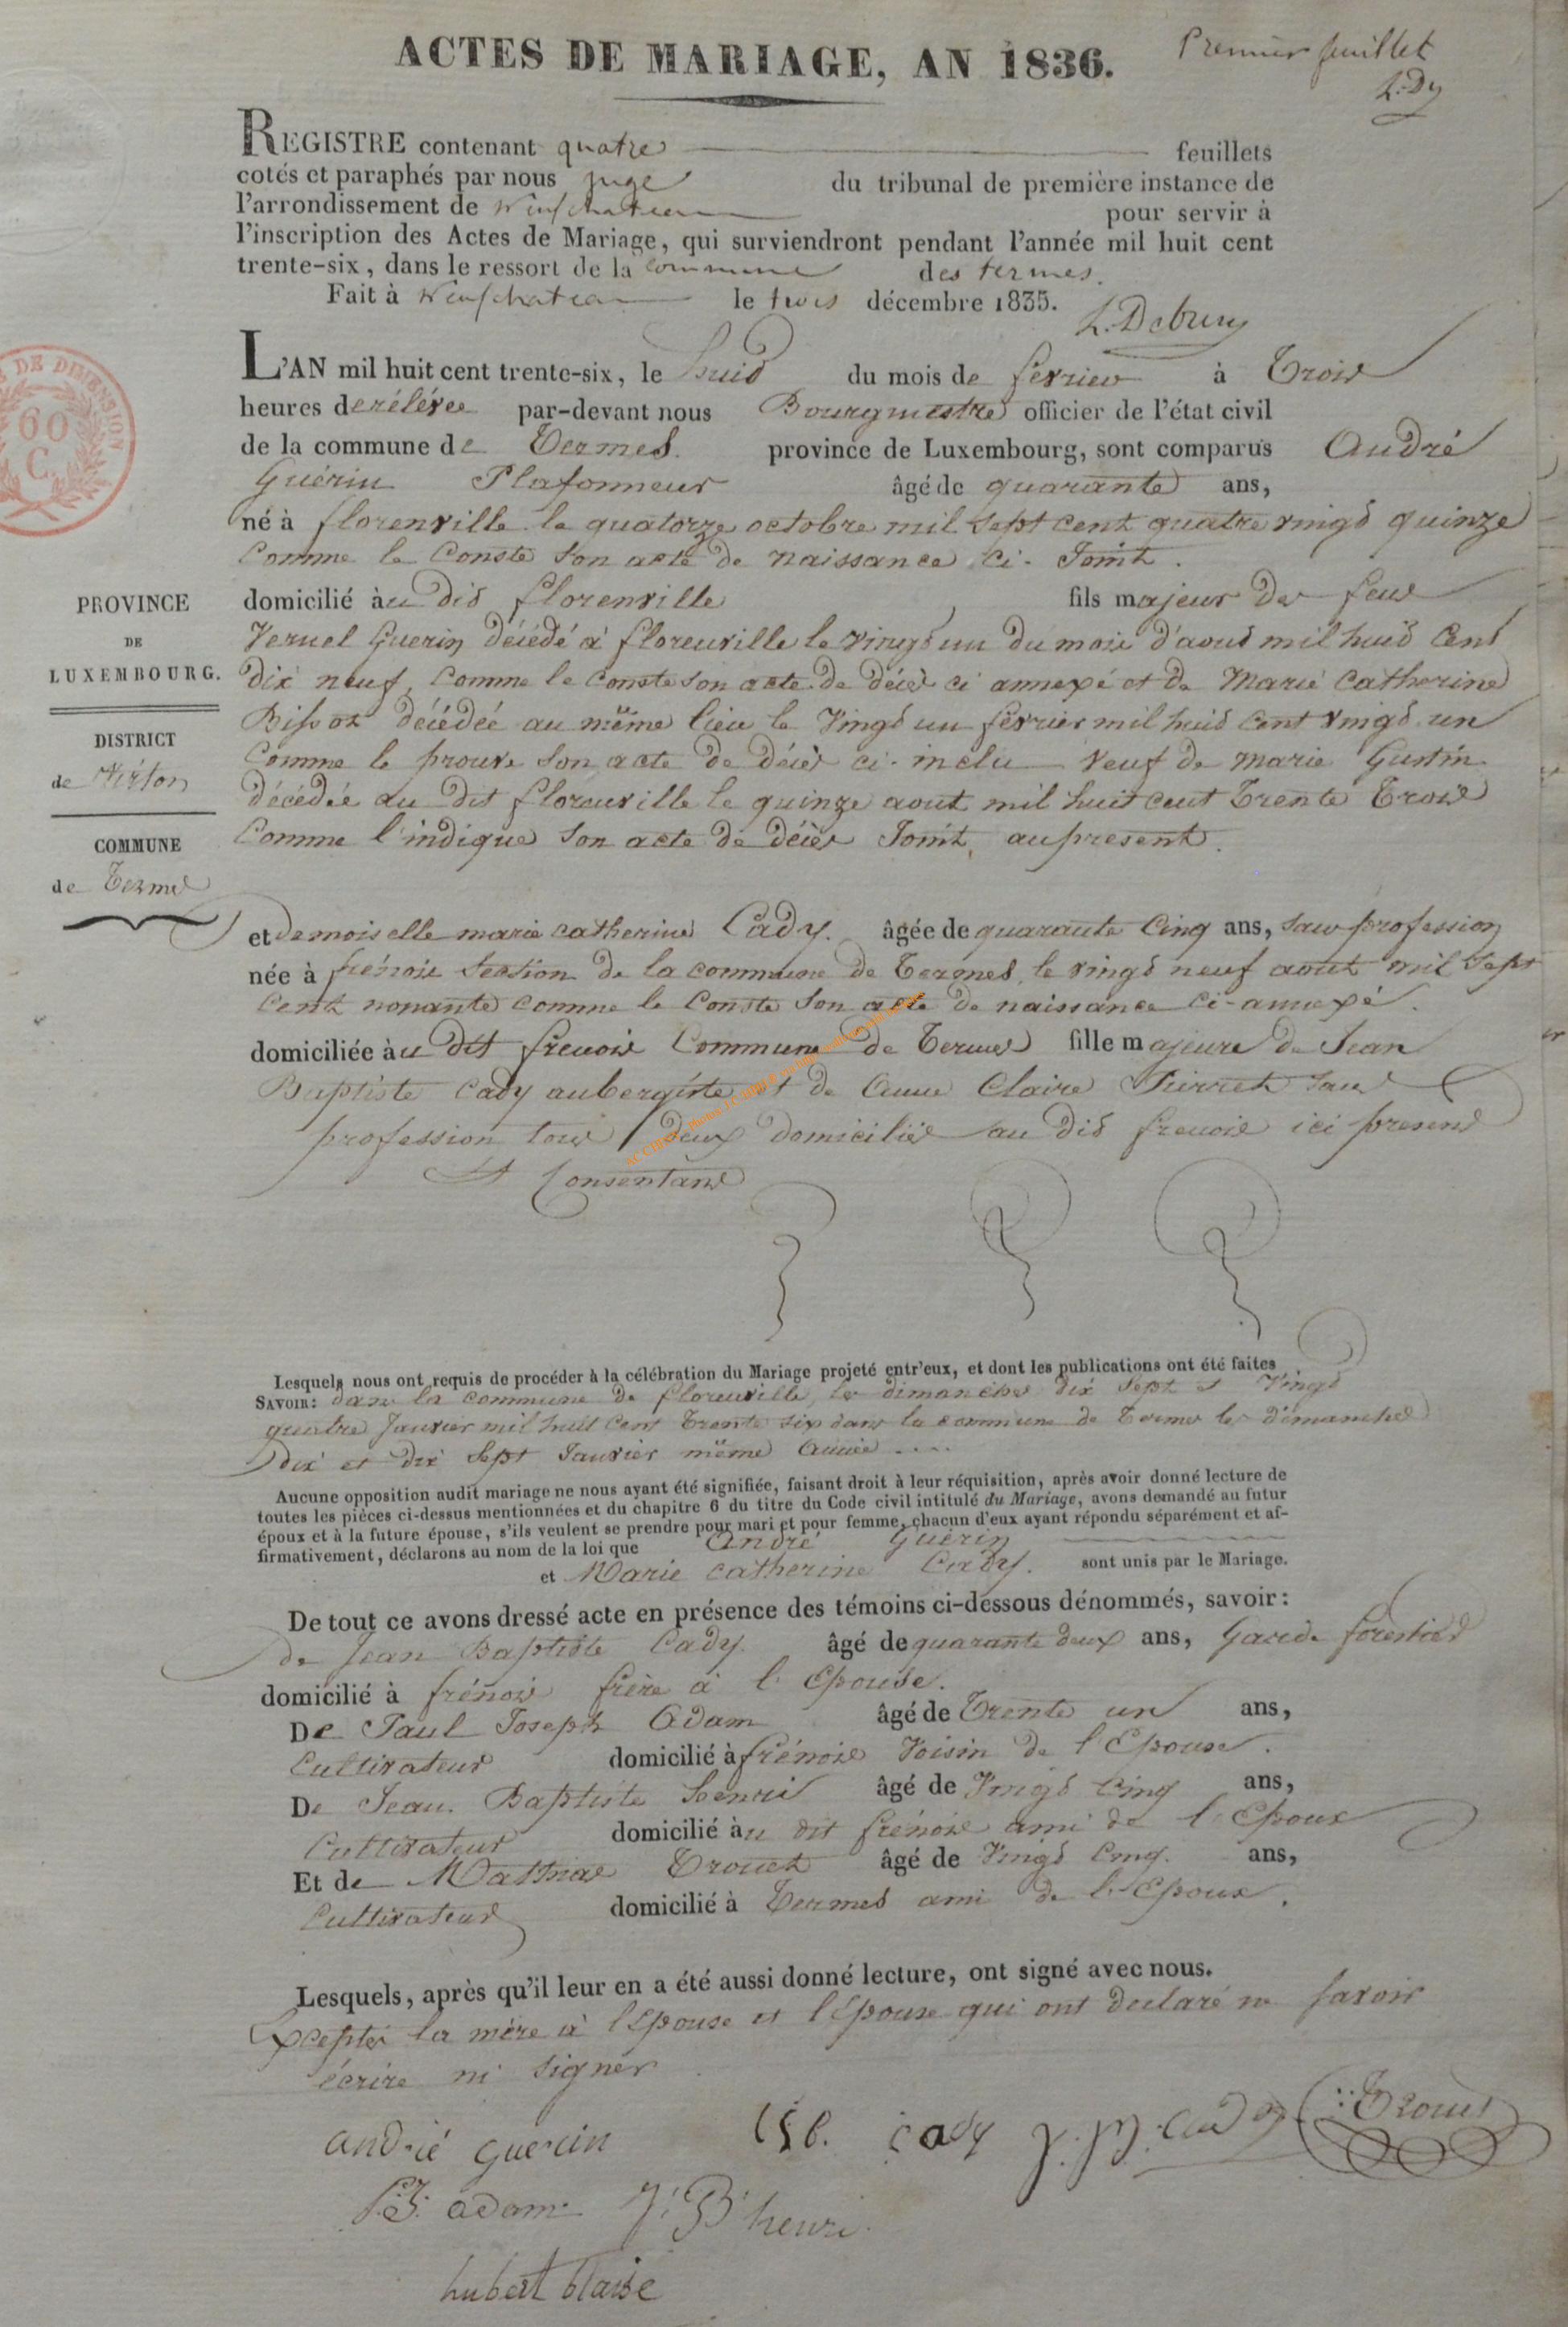 ACTES DE MARIAGE, AN 1836.
Premier feuillet
L. Dy
REGISTRE contenant quatre feuillets
cotés et paraphés par nous juge du tribunal de première instance de
l'arrondissement de Neufchateau pour servir à
l'inscription des Actes de Mariage, qui surviendront pendant l'année mil huit cent
trente-six, dans le ressort de la commune des termes.
Fait à Neufchateau le trois décembre 1835.
L. Debury
DE DIMENSION
60
C.
L'AN mil huit cent trente-six, le huid du mois de fevrier à Trois
heures de rélévée par-devant nous Bourgmestre officier de l'état civil
de la commune de Termes. province de Luxembourg, sont comparus André
Guérin Plafonneur âgé de quarante ans,
né à florenville le quatorze octobre mil sept cent quatre vingd quinze
Comme le Conste son acte de naissance ci-Joint.
domicilié àu did florenville fils majeur de feus
Guerin décédé à florenville le vingd un du mois d'aoud mil huid Cent
dix neuf, Comme le Conste son acte de décès ci annexé et de Marie Catherine
décédée au même lieu le Vingd un fevrier mil huid cent vingd un
Comme le prouve son acte de décès ci-inclu veuf de marie Gustin
décédée au dit florenville le quinze aout mil huit cent Trente Trois
Comme l'indique son acte de décès Joint, au present.
PROVINCE
DE
LUXEMBOURG.
DISTRICT
de Virton
COMMUNE
de Termes
et demoiselle marie catherine Cady. âgée de quarante Cinq ans, sans profession
née à frénois Section de la commune de Termes le vingd neuf aout mil Sept
Cent nonante comme le Conste son acte de naissance ci-annexé.
domiciliée àu dit frenois Commune de Termes fille majeure de Jean
Baptiste Cady aubergiste et de Anne Claire sans
profession tous deux domiciliés au did frenois ici presens
et Consentans
Lesquels nous ont requis de procéder à la célébration du Mariage projeté entr'eux, et dont les publications ont été faites
SAVOIR: dans la commune de florenville, les dimanches dix Sept et Vingd
quatre Janvier mil huit Cent Trente six dans la commune de Termes les dimanches
dix et dix Sept Janvier même Année ....
Aucune opposition audit mariage ne nous ayant été signifiée, faisant droit à leur réquisition, après avoir donné lecture de
toutes les pièces ci-dessus mentionnées et du chapitre 6 du titre du Code civil intitulé du Mariage, avons demandé au futur
époux et à la future épouse, s'ils veulent se prendre pour mari et pour femme, chacun d'eux ayant répondu séparément et af-
firmativement, déclarons au nom de la loi que André Guérin
et Marie Catherine Cady. sont unis par le Mariage.
De tout ce avons dressé acte en présence des témoins ci-dessous dénommés, savoir:
de Jean Baptiste Cady. âgé de quarante deux ans, Garde forestier
domicilié à frénois frère à l'Epouse.
De Paul Joseph Adam âgé de Trente un ans,
Cultivateur domicilié à frénois Voisin de l'Epouse.
De Jean Baptiste henri âgé de Vingd Cinq ans,
Cultivateur domicilié àu dit frénois ami de l'Epoux
Et de Mathias Trouet âgé de Vingd Cinq. ans,
Cultivateur domicilié à Termes ami de l'Epoux.
Lesquels, après qu'il leur en a été aussi donné lecture, ont signé avec nous.
Excepter la mère à l'Epouse et l'Epouse qui ont declaré ne savoir
écrire ni signer
andrié guerin cady J. B. Cady
P.J. adam J. B henri
hubert blaise